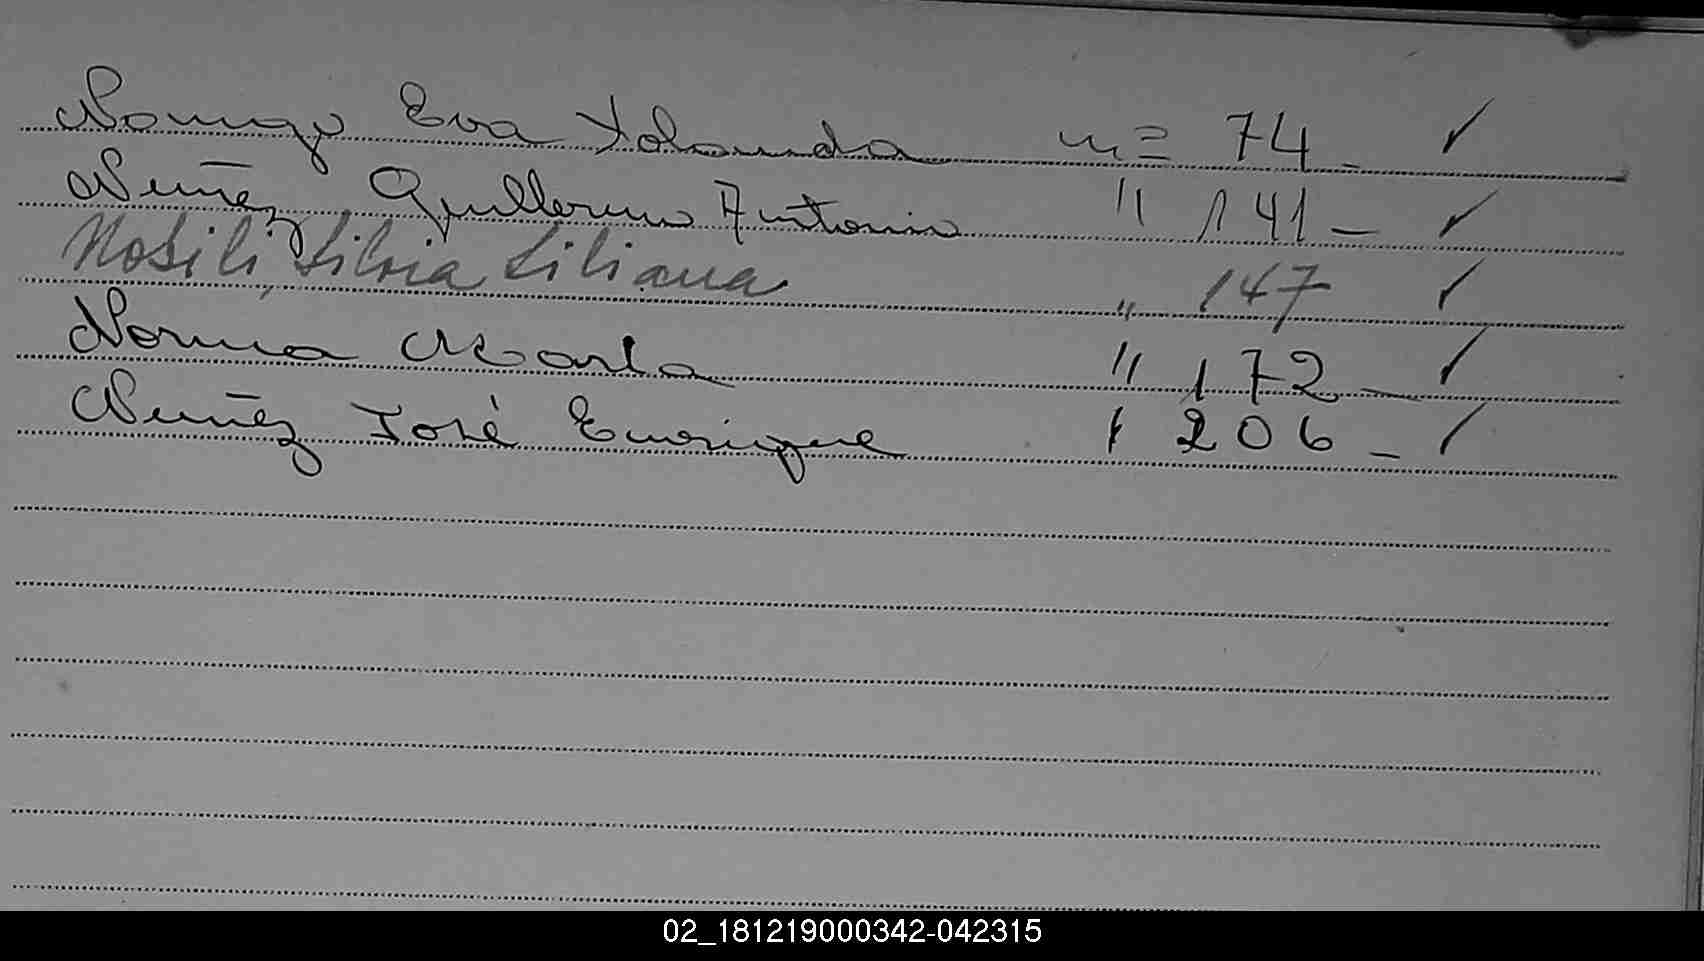 Eva Yolanda n= 74 - ✓
Nuñez Guillermo Antonio " 141 - ✓
Nobili, Silvia Liliana " 147 ✓
Norma Marta " 172 - ✓
Nuñez José Enrique " 206 - ✓
02_181219000342-042315